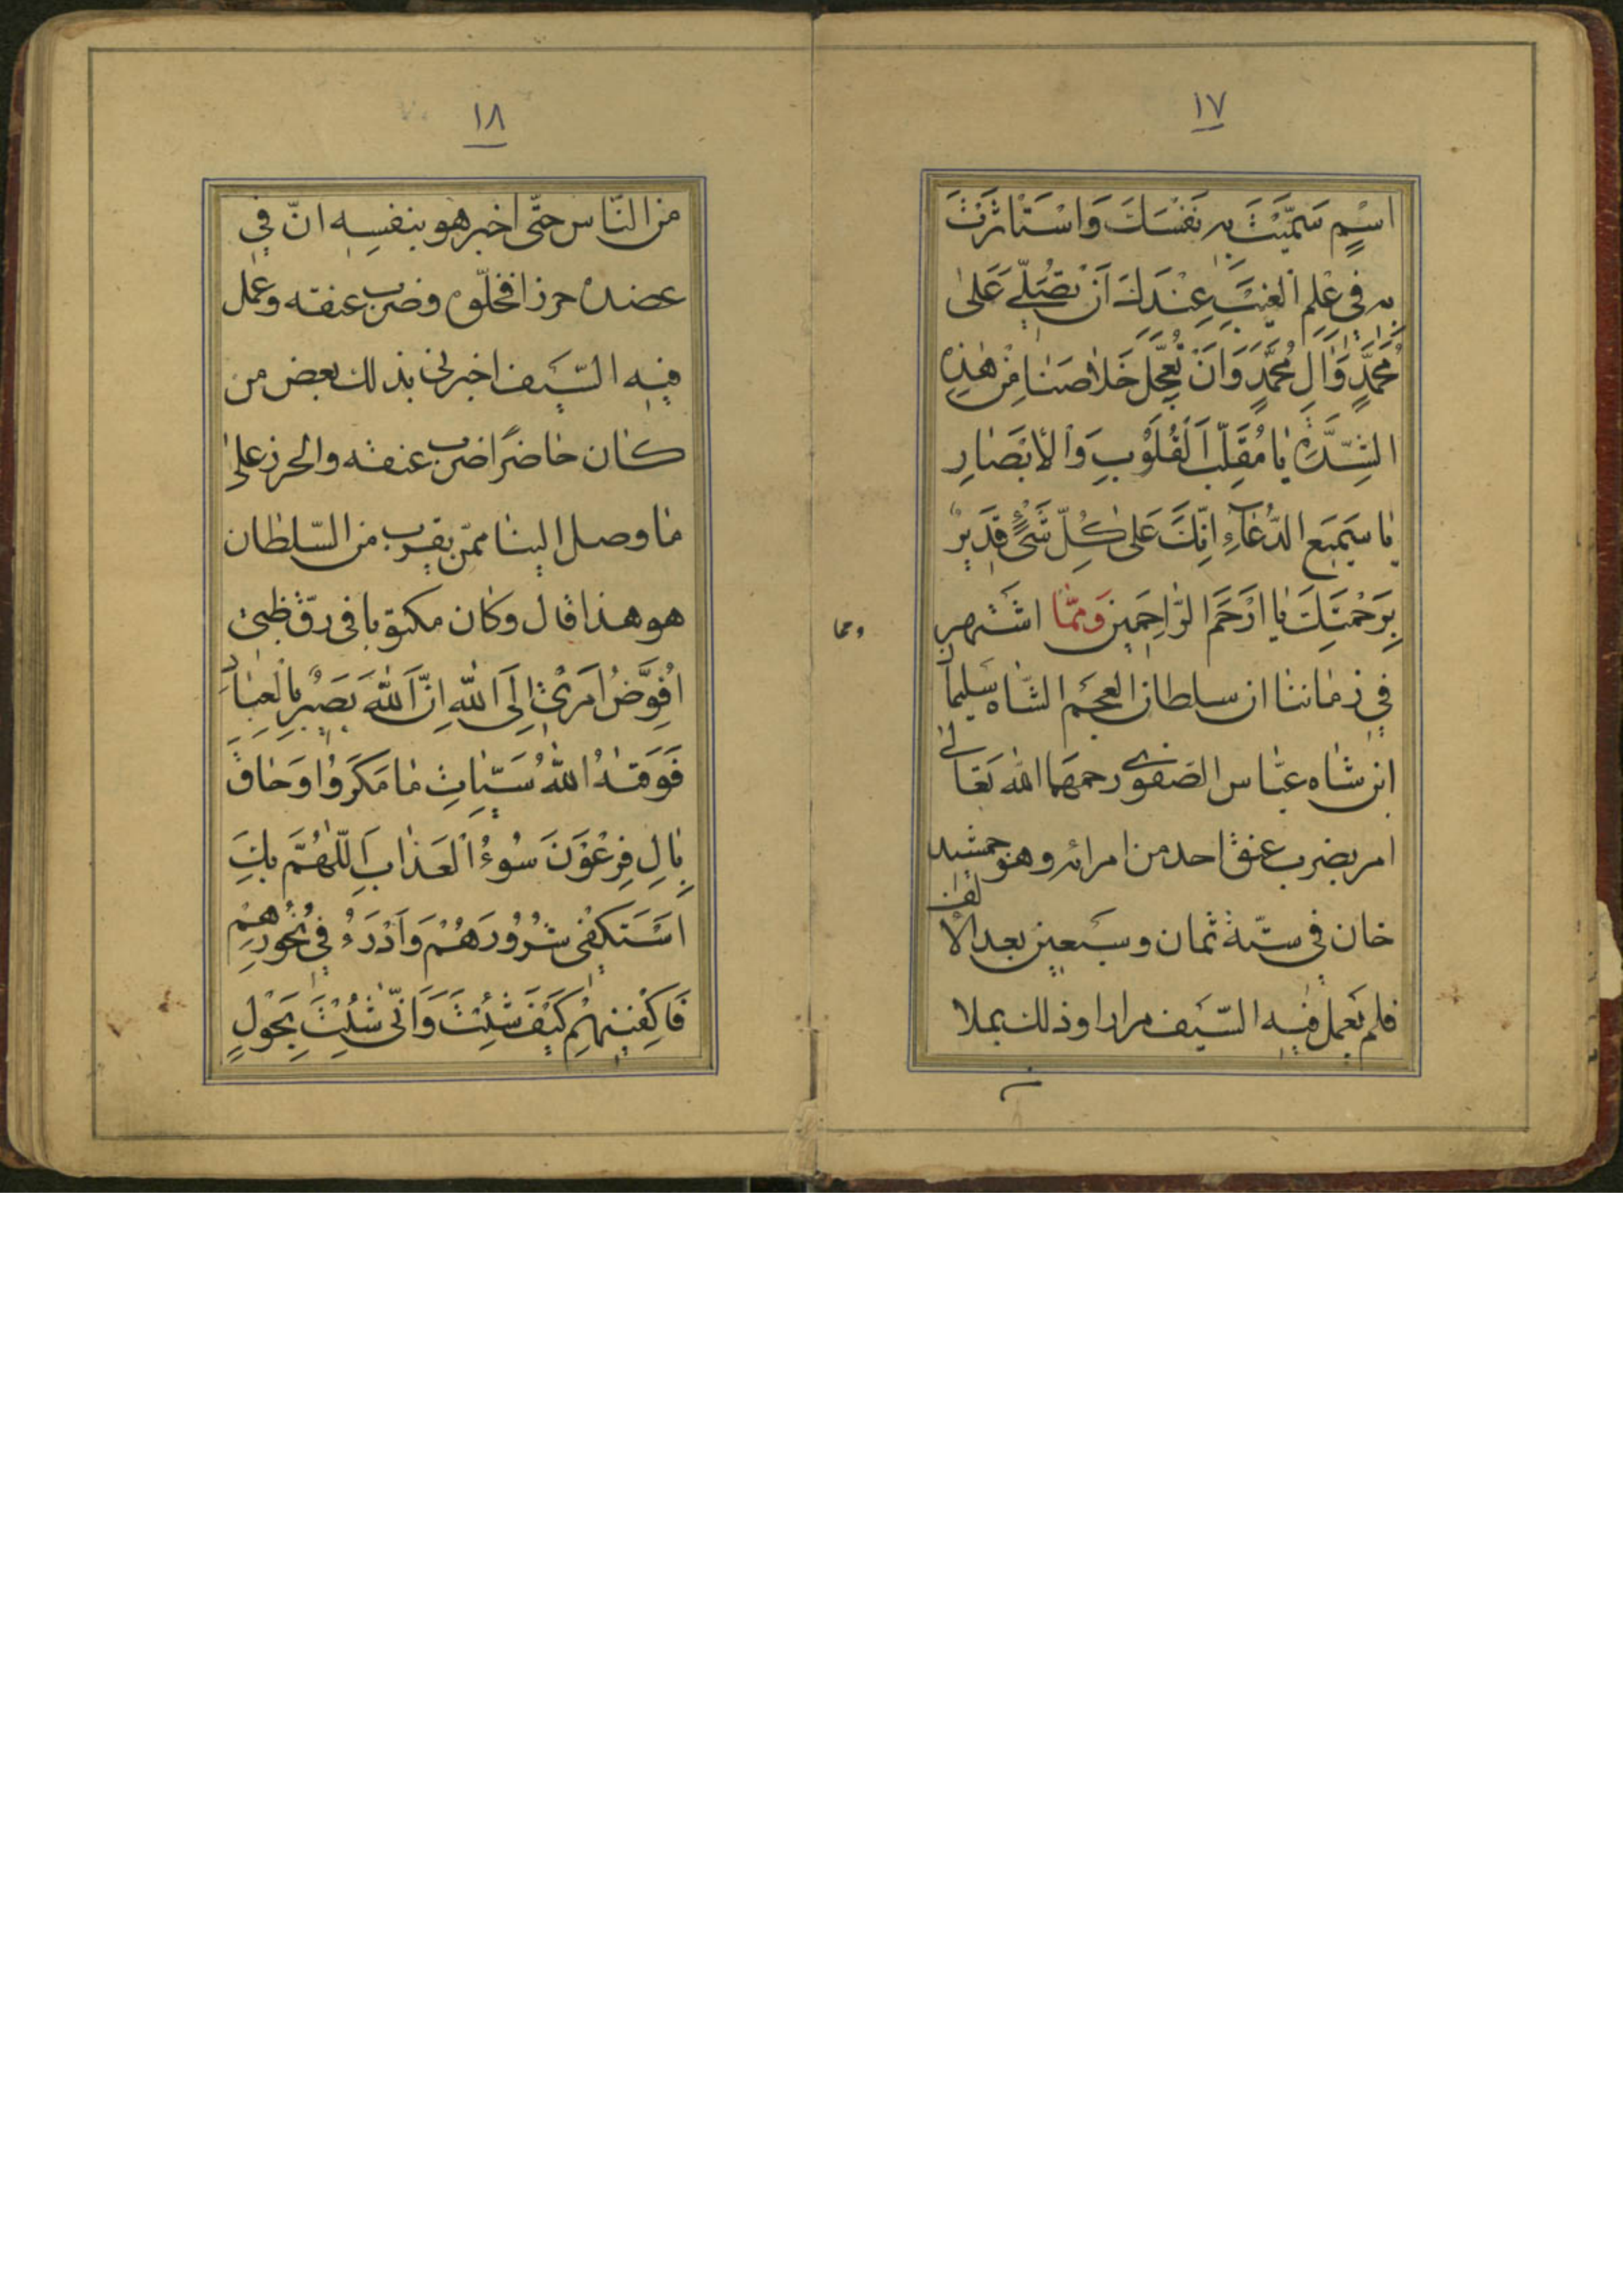 ١٧
اسْمٍ سَمَّيْتَ بِهِ نَفْسَكَ وَاسْتَاثَرْتَ
بِهِ فِي عِلْمِ الْغَيْبِ عِنْدَكَ اَنْ تُصَلِّيَ عَلىٰ
مُحَمَّدٍ وَالِ مُحَمَّدٍ وَاَنْ تُعَجِّلَ خَلاصَنَا مِنْ هٰذِهِ
الشِّدَّةِ يَا مُقَلِّبَ الْقُلُوْبِ وَالْاَبْصَارِ
يَا سَمِيعَ الدُّعَآءِ اِنَّكَ عَلىٰ كُلِّ شَيْءٍ قَدِيرٌ
بِرَحْمَتِكَ يَا اَرْحَمَ الرَّاحِمِينَ وَمِمَّا اشتهر
ومما
في زماننا ان سلطان العجم الشاه سليمان
ابن شاه عباس الصفوي رحمهما الله تعالى
امر بضرب عنق احد من امرائه وهو جمشيد
خان في ستة ثمان وسبعين بعد الالف
فلم يعمل فيه السّيف مرارا وذلك بملا
١٨
من النّاس حتّى اخبر هو بنفسه انّ في
عضده حرزا فحلّوه وضرب عنقه وعمل
فيه السّيف اخبرني بذلك بعض من
كان حاضرًا ضرب عنقه والحرز على
ما وصل الينا ممّن يقرب من السّلطان
هو هذا قال وكان مكتوبا في رقّ ظبي
اُفَوِّضُ اَمْرِيْ اِلَى اللهِ اِنَّ اللهَ بَصِيْرٌ بِالْعِبَادِ
فَوَقٰهُ اللهُ سَيِّاتِ مَا مَكَرُوْا وَحَاقَ
بِالِ فِرْعَوْنَ سُوْءُ الْعَذَابِ اَللّٰهُمَّ بِكَ
اَسْتَكْفِيْ شُرُوْرَهُمْ وَاَدْرَءُ فِيْ نُحُوْرِهِمْ
فَاكْفِنِيْهِمْ كَيْفَ شِئْتَ وَاَنّٰى شِئْتَ بِحَوْلٍ